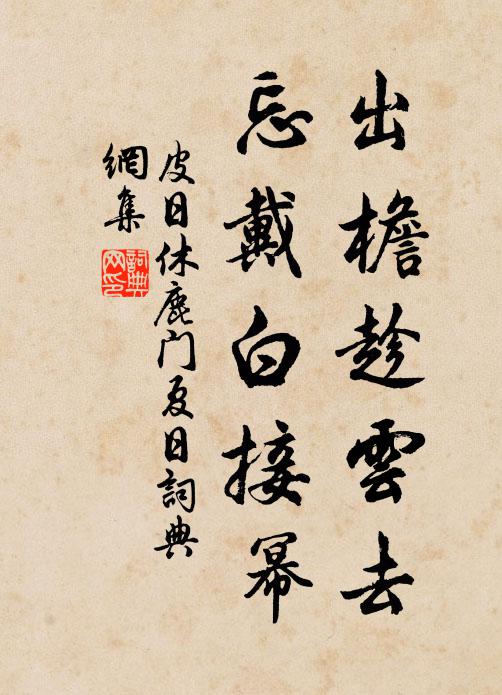 出檐趁雲去
忘戴白接幂
皮日休鹿门夏日詞典
網集
詞典
网印